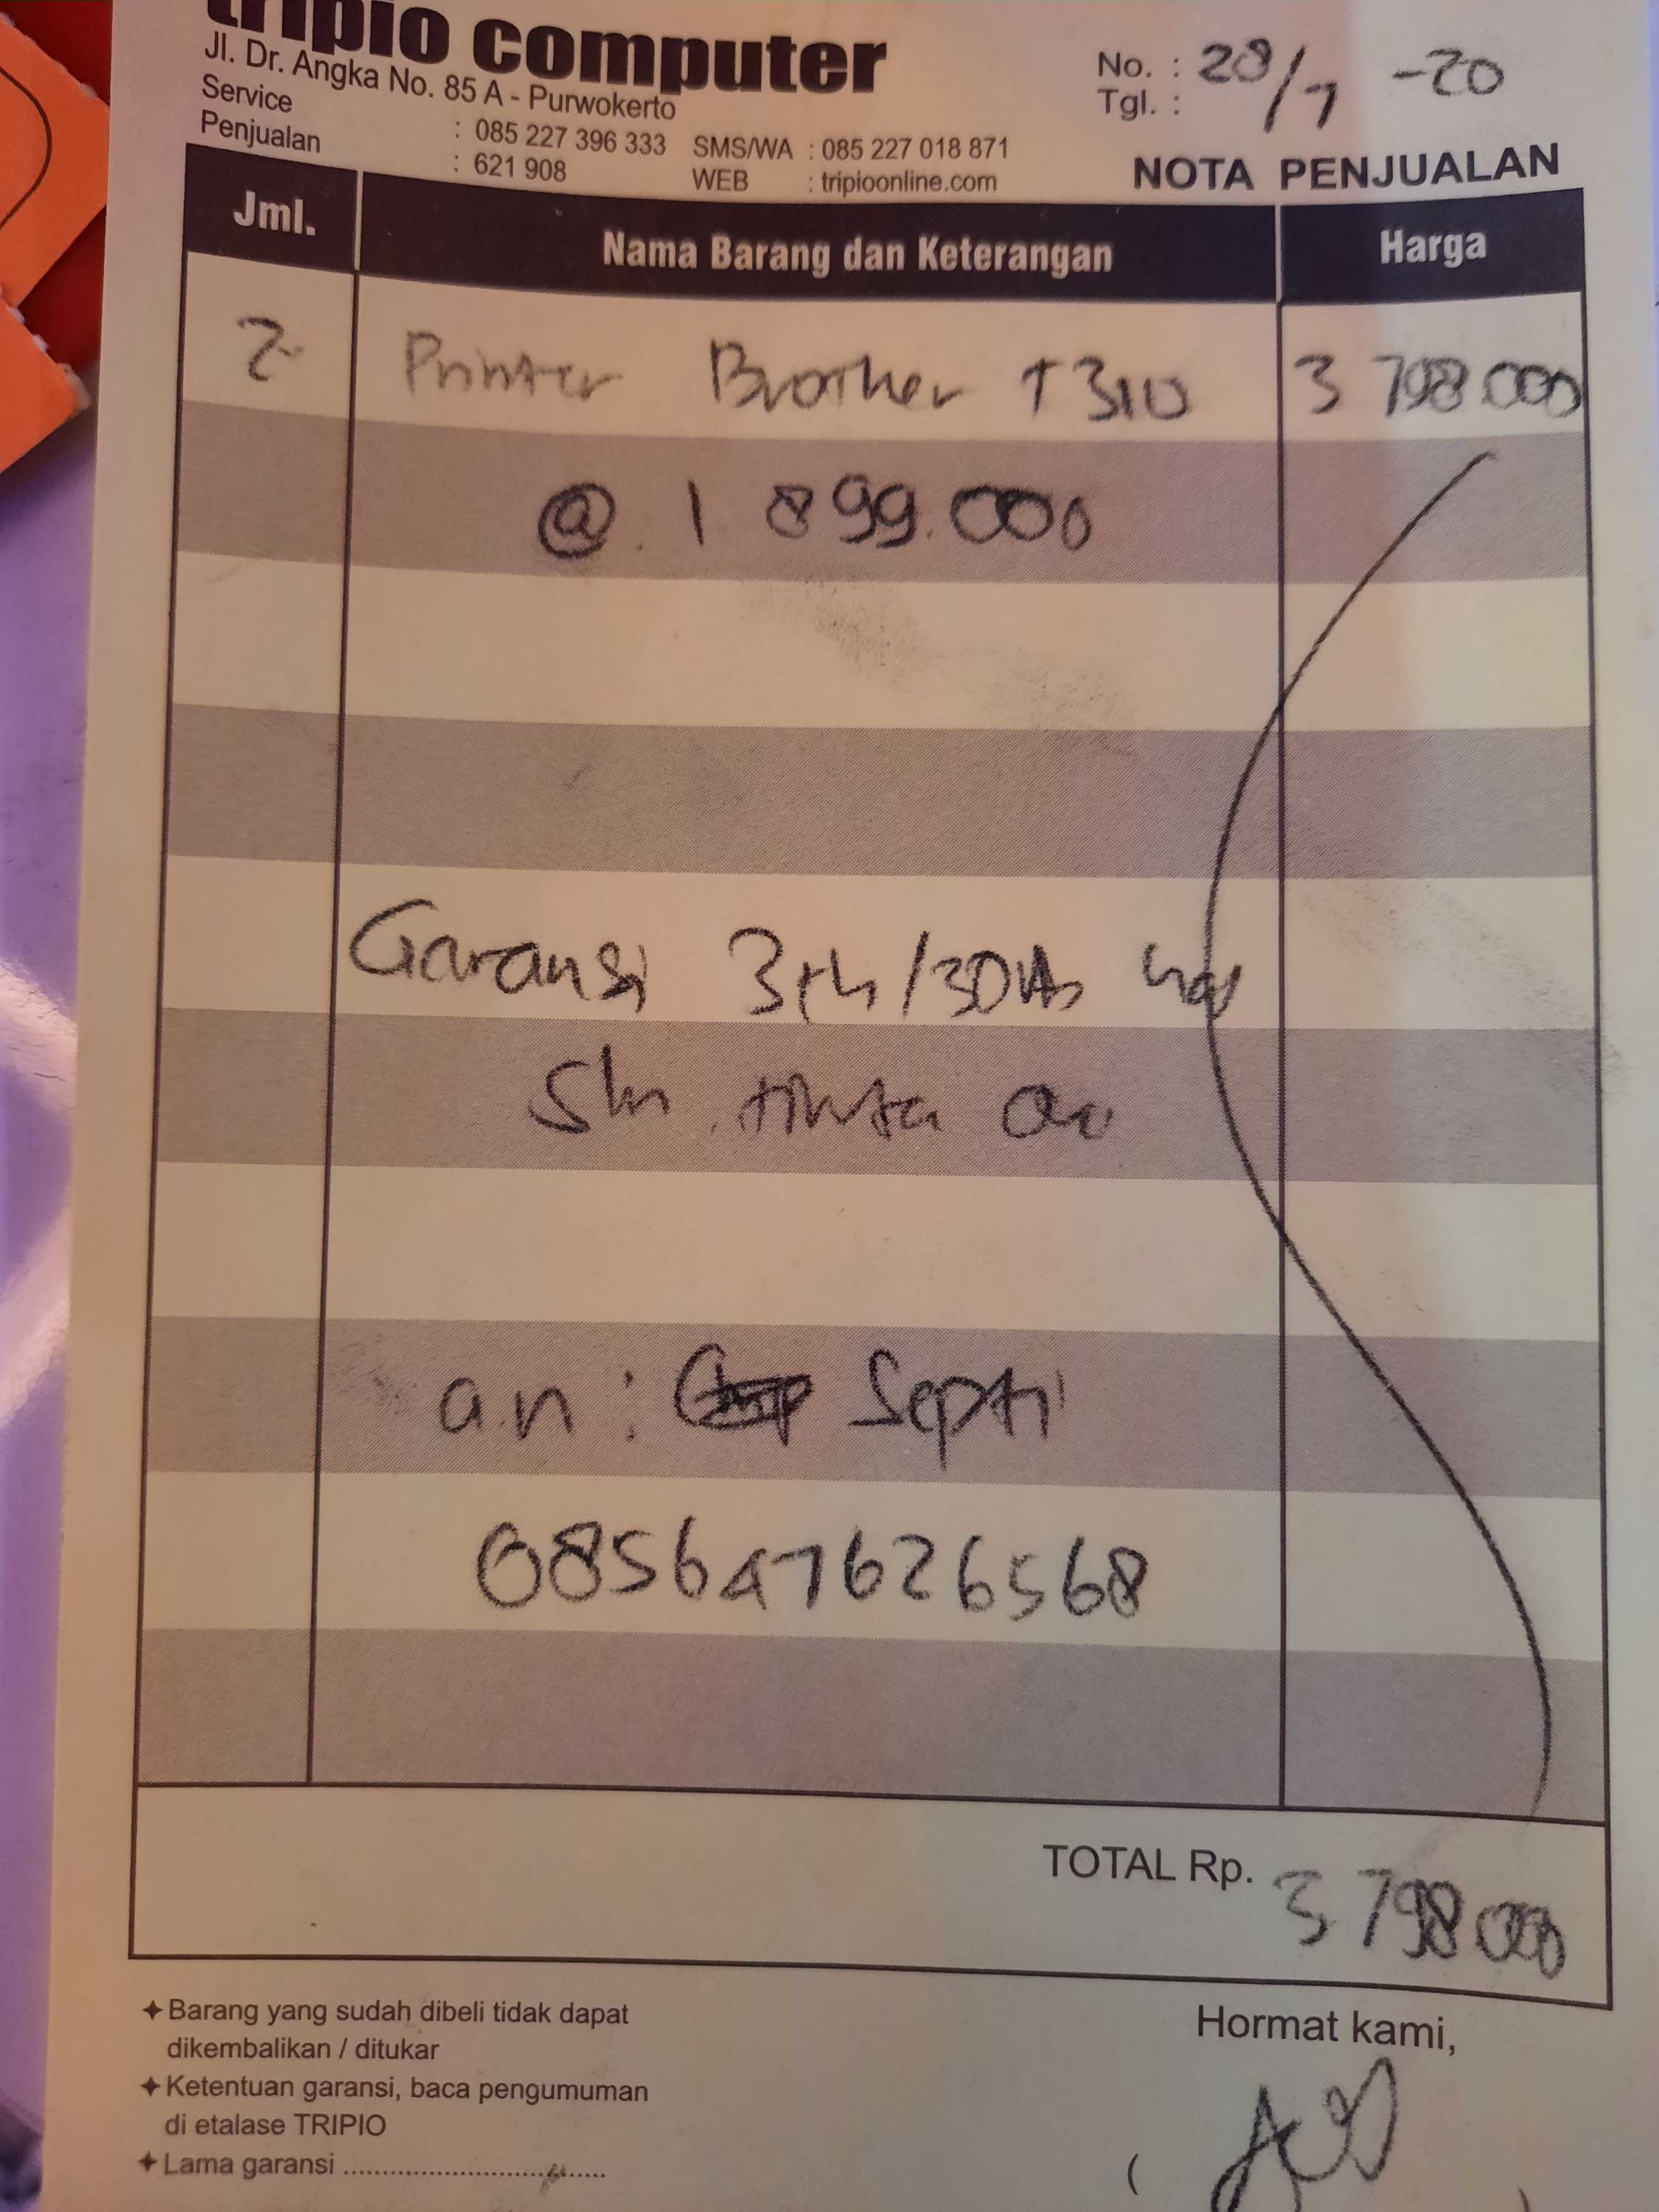 tripio computer
Jl. Dr. Angka No. 85 A - Purwokerto
Service : 085 227 396 333 SMS/WA : 085 227 018 871
Penjualan : 621 908 WEB : tripioonline.com
No. : 28/7 -20
Tgl. :
NOTA PENJUALAN
Jml. Nama Barang dan Keterangan Harga
2 Printer Brother T310 3 798.000
@. 1 899.000
Garansi 3th/30
tinta
a.n : Septi
085647626568
TOTAL Rp. 3 798 000
✦ Barang yang sudah dibeli tidak dapat
dikembalikan / ditukar
✦ Ketentuan garansi, baca pengumuman
di etalase TRIPIO
✦ Lama garansi ....................................
Hormat kami,